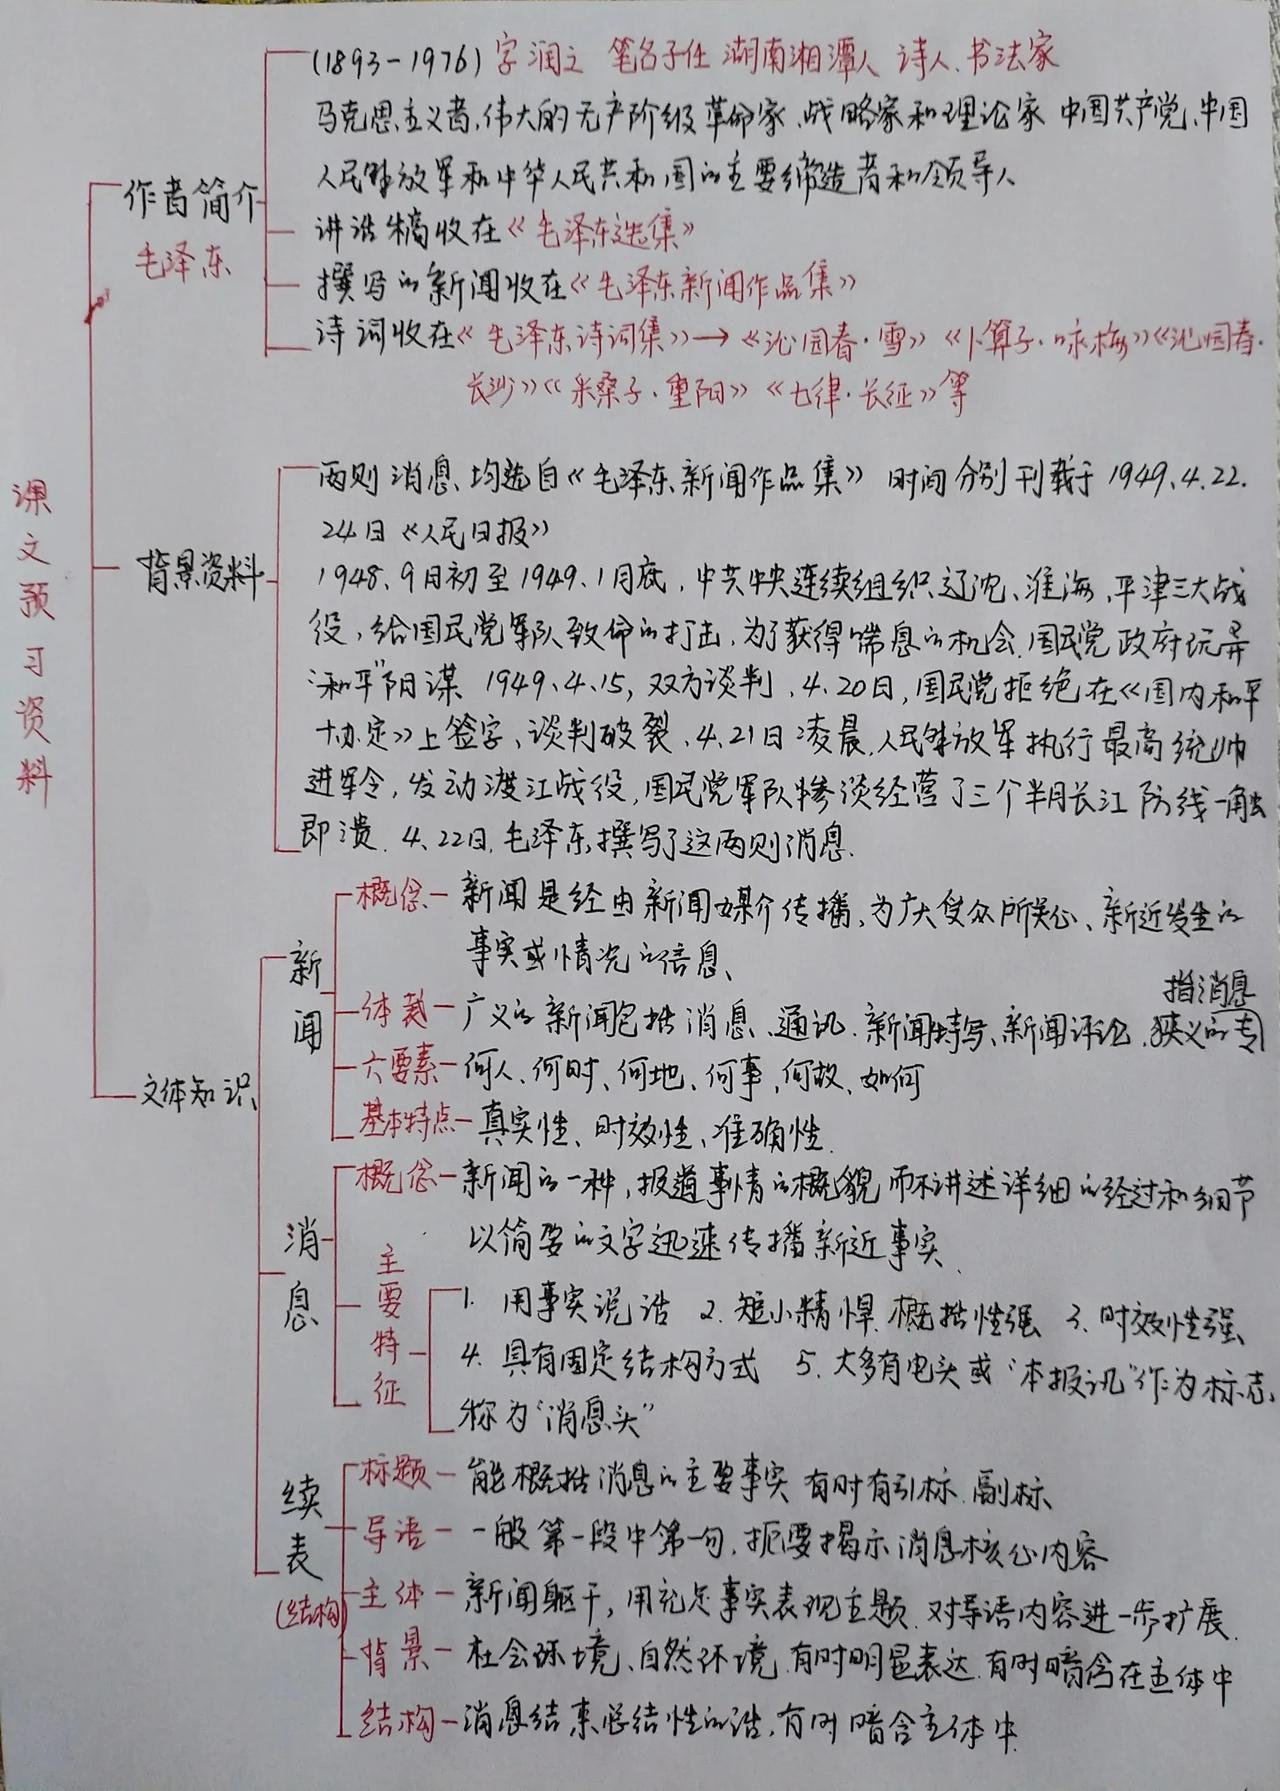 课文预习资料
作者简介
毛泽东
(1893-1976)字润之 笔名子任 湖南湘潭人 诗人、书法家
马克思主义者,伟大的无产阶级革命家、战略家和理论家 中国共产党、中国
人民解放军和中华人民共和国的主要缔造者和领导人
讲话稿收在《毛泽东选集》
撰写的新闻收在《毛泽东新闻作品集》
诗词收在《毛泽东诗词集》→《沁园春·雪》《卜算子·咏梅》《沁园春·
长沙》《采桑子·重阳》《七律·长征》等
背景资料
两则消息、均选自《毛泽东新闻作品集》 时间分别刊载于1949、4.22.
24日《人民日报》
1948、9月初至1949、1月底,中共中央连续组织辽沈、淮海、平津三大战
役,给国民党军队致命的打击,为了获得喘息的机会、国民党政府玩弄
“和平”阴谋 1949、4、15,双方谈判、4、20日,国民党拒绝在《国内和平
协定》上签字、谈判破裂、4、21日凌晨、人民解放军执行最高统帅
进军令,发动渡江战役,国民党军队惨淡经营了三个半月长江防线一触
即溃. 4、22日,毛泽东撰写了这两则消息.
文体知识
新闻
概念-新闻是经由新闻媒介传播,为广大受众所关心、新近发生的
事实或情况的信息、
指消息
体裁-广义的新闻包括消息、通讯、新闻特写、新闻评论、狭义的专
六要素-何人、何时、何地、何事,何故、如何
基本特点-真实性、时效性、准确性.
消息
概念-新闻的一种,报道事情的概貌而不讲述详细的经过和细节
以简要的文字迅速传播新近事实、
主要特征
1. 用事实说话 2. 短小精悍、概括性强 3. 时效性强
4. 具有固定结构方式 5. 大多有电头或“本报讯”作为标志,
称为“消息头”
续表
(结构)
标题-能概括消息的主要事实 有时有引标、副标、
导语-一般第一段中第一句,扼要揭示消息核心内容
主体-新闻躯干,用充足事实表现主题、对导语内容进一步扩展.
背景-社会环境、自然环境、有时明显表达、有时暗含在主体中
结构-消息结束总结性的话,有时暗含主体中.